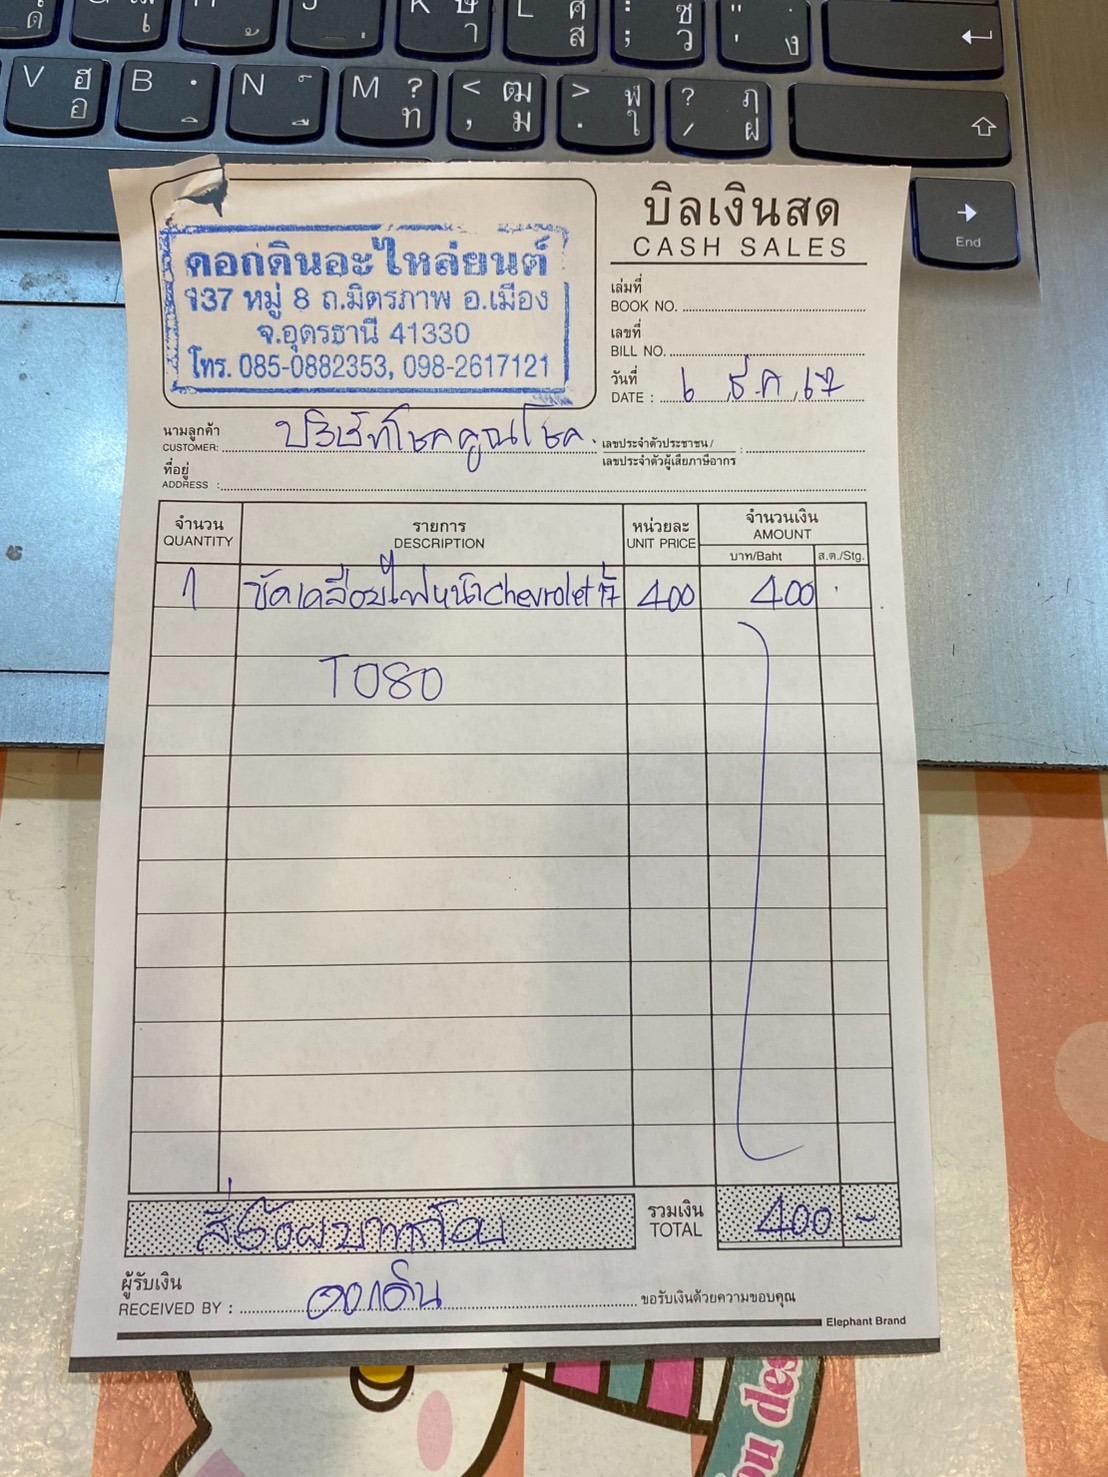 K ษ า
L ศ ส
: ซ ; ว
" . ' ง
V ฮ อ
B
N
M ? ท
< ฒ , ม
> ฬ . ใ
? ฦ / ฝ
End
บิลเงินสด
CASH SALES
ดอกดินอะไหล่ยนต์
137 หมู่ 8 ถ.มิตรภาพ อ.เมือง
จ.อุดรธานี 41330
โทร. 085-0882353, 098-2617121
เล่มที่
BOOK NO.
เลขที่
BILL NO.
วันที่
DATE : 6 ธ.ค. 67
นามลูกค้า
CUSTOMER: บริษัทโชคคูณโชค.
เลขประจำตัวประชาชน /
เลขประจำตัวผู้เสียภาษีอากร :
ที่อยู่
ADDRESS :
จำนวน รายการ หน่วยละ จำนวนเงิน
QUANTITY DESCRIPTION UNIT PRICE AMOUNT
บาท/Baht ส.ต./Stg.
1 ขัดเคลือบไฟหน้า Chevrolet 400 400
T080
สี่ร้อยบาทถ้วน รวมเงิน
TOTAL 400 -
ผู้รับเงิน
RECEIVED BY : ดอกดิน ขอรับเงินด้วยความขอบคุณ
Elephant Brand